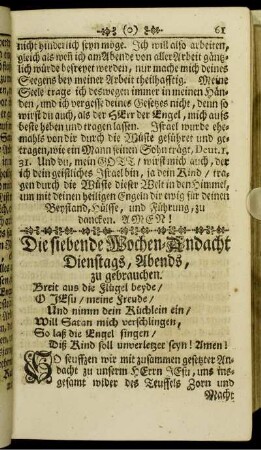 (o) 61
nicht hinderlich seyn möge. Ich will also arbeiten,
gleich als wolt ich am Abende von aller Arbeit gäntz-
lich würde befreyet werden, nur mache mich deines
Seegens bey meiner Arbeit theilhafftig. Meine
Seele trage ich deswegen immer in meinen Hän-
den, und ich vergesse deines Gesetzes nicht, denn so
wirst du auch, als der HErr der Engel, mich aufs
beste heben und tragen lassen. Israel wurde ehe-
mahls von dir durch die Wüste geführet und ge-
tragen, wie ein Mann seinen Sohn trägt, Deut. 1.
31. Und du, mein GOTT, wirst mich auch, der
ich dein geistliches Israel bin, ja dein Kind / tra-
gen durch die Wüste dieser Welt in den Himmel,
um mit deinen heiligen Engeln dir ewig für deinen
Beystand, Hülffe, und Führung, zu
dancken. AMEN!
Die siebende Wochen-Andacht
Dienstags, Abends,
zu gebrauchen.
Breit aus die Flügel beyde /
O JEsu / meine Freude /
Und nimm dein Küchlein ein /
Will Satan mich verschlingen,
So laß die Engel singen /
Diß Kind soll unverletzet seyn! Amen!
SO seuffzen wir mit zusammen gesetzter An-
dacht zu unserm HErrn JEsu, uns ins-
gesamt wider des Teuffels Zorn und
Macht